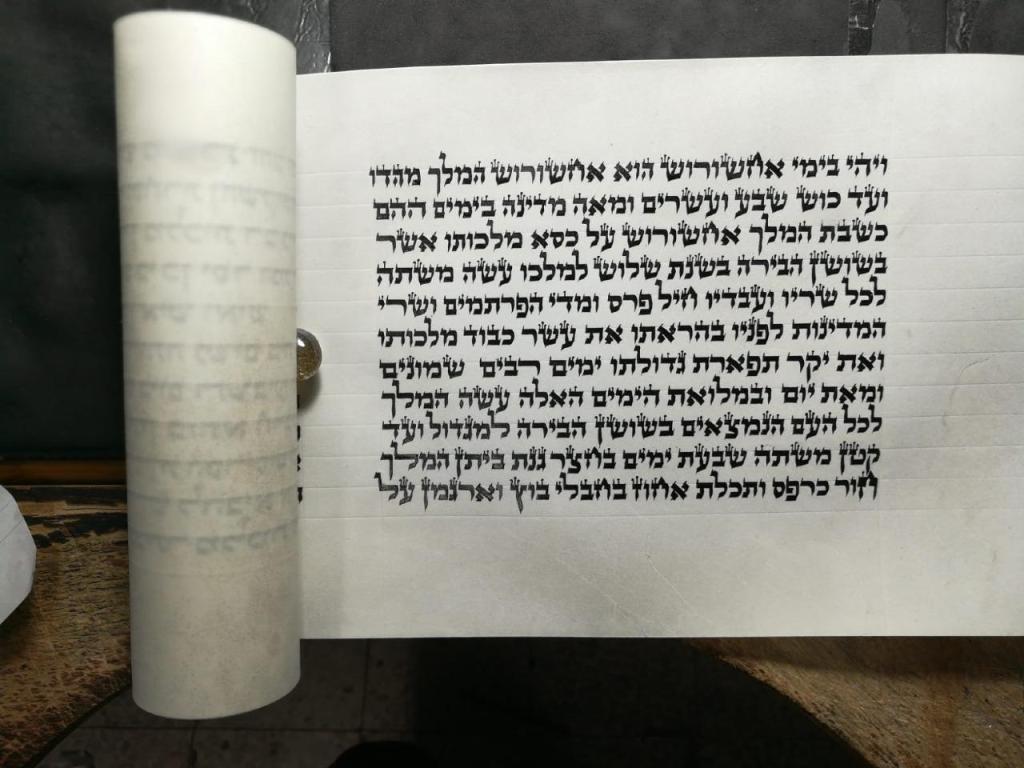 ויהי בימי אחשורוש הוא אחשורוש המלך מהדו
ועד כוש שבע ועשרים ומאה מדינה בימים ההם
כשבת המלך אחשורוש על כסא מלכותו אשר
בשושן הבירה בשנת שלוש למלכו עשה משתה
לכל שריו ועבדיו חיל פרס ומדי הפרתמים ושרי
המדינות לפניו בהראתו את עשר כבוד מלכותו
ואת יקר תפארת גדולתו ימים רבים שמונים
ומאת יום ובמלואת הימים האלה עשה המלך
לכל העם הנמצאים בשושן הבירה למגדול ועד
קטן משתה שבעת ימים בחצר גנת ביתן המלך
חור כרפס ותכלת אחוז בחבלי בוץ וארגמן על